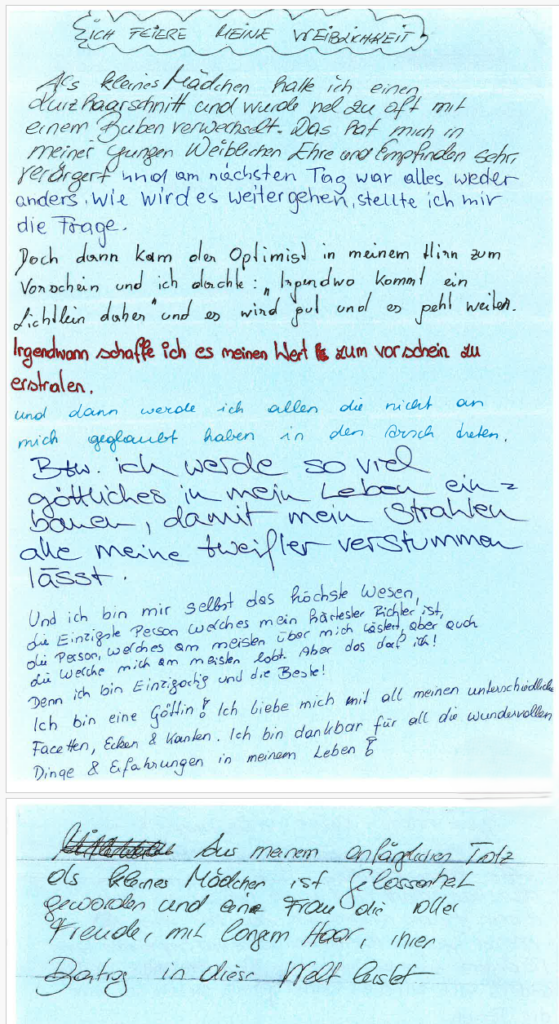 ICH FEIERE MEINE WEIBLICHKEIT
Als kleines Mädchen hatte ich einen
Kurzhaarschnitt und wurde viel zu oft mit
einem Buben verwechselt. Das hat mich in
meiner jungen Weiblichen Ehre und Empfinden sehr
verärgert und am nächsten Tag war alles weder
anders. Wie wird es weitergehen, stellte ich mir
die Frage.
Doch dann kam der Optimist in meinem Hirn zum
Vorschein und ich dachte: „Irgendwo kommt ein
Lichtlein daher" und es wird gut und es geht weiter.
Irgendwann schaffe ich es meinen Wert zum vorschein zu
erstralen.
und dann werde ich allen die nicht an
mich geglaubt haben in den Arsch treten.
Bzw. ich werde so viel
göttliches in mein Leben ein=
bauen, damit mein Strahlen
alle meine Zweifler verstummen
lässt.
Und ich bin mir selbst das höchste Wesen,
die Einzigste Person welches mein härtester Richter ist,
die Person, welches am meisten über mich lästert, aber auch
die welche mich am meisten lobt. Aber das darf ich!
Denn ich bin Einzigartig und die Beste!
Ich bin eine Göttin! Ich liebe mich mit all meinen unterschiedliche
Facetten, Ecken & Kanten. Ich bin dankbar für all die wundervollen
Dinge & Erfahrungen in meinem Leben!
Aus meinem anfänglichen Trotz
als kleines Mädchen ist Gelassenheit
geworden und eine Frau die voller
Freude, mit langem Haar, ihren
Beitrag in diese Welt leistet